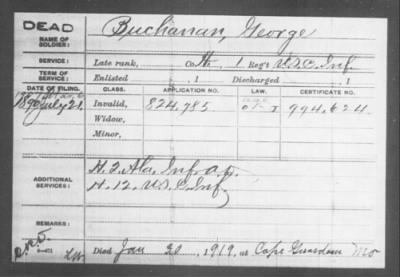 DEAD
NAME OF SOLDIER:
Buchanan, George
SERVICE:
Late rank, Co. H, 1 Reg't U.S.C. Inf.
TERM OF SERVICE:
Enlisted , 1 Discharged , 1
DATE OF FILING. CLASS. APPLICATION NO. LAW. CERTIFICATE NO.
1890 July 21. Invalid, 824,785 994,624
Widow,
Minor,
ADDITIONAL SERVICES:
H. 2. Ala. Inf. A.D.
H. 12. U.S.C. Inf.
REMARKS:
Died Jan 20, 1919, at Cape Girardeau Mo